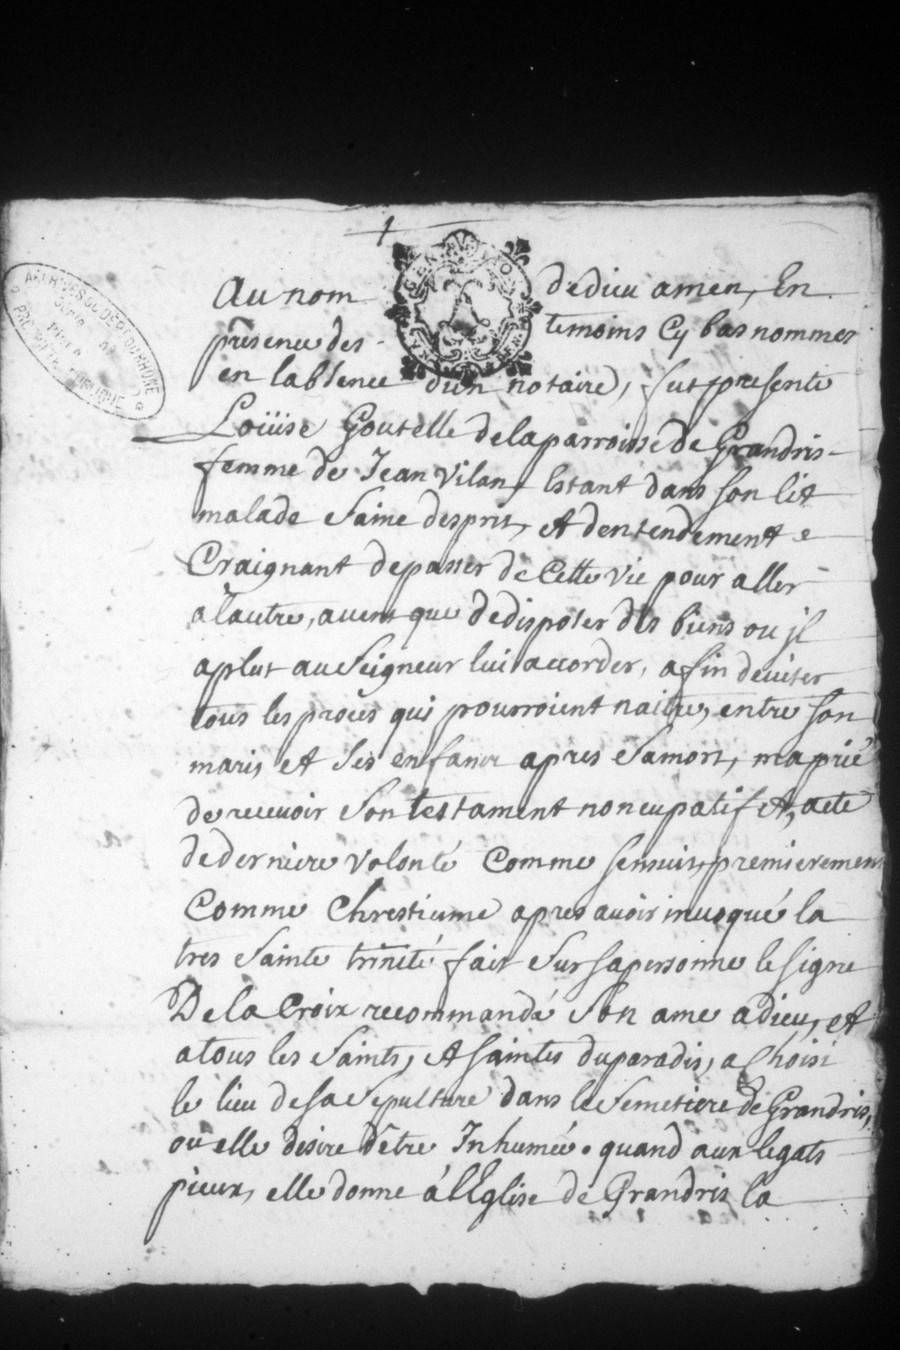 1
Au nom de dieu amen, En
presence des temoins Cy bas nommez
en labsence dun notaire, fut presente
Loüise Goutelle de la parroisse de Grandris
femme de Jean Vilan Estant dans son lit
malade Saine desprit, et dentendement e
Craignant de passer de Cette Vie pour aller
a lautre, avent que de disposer des biens ou jl
a plut au Seigneur lui accorder, afin deviter
tous les procès qui pourroient naitre, entre son
mari, et Ses enfans apres Sa mort, ma prié
de recevoir Son testament noncupatif et, acte
de derniere Volonté Comme sensuit, premierement
Comme Chrestienne apres avoir invoqué la
tres Sainte trinité fait Sur sa personne le signe
De la Croix recommandé Son ame a dieu, et
a tous les Saints, et saintes du paradis, a Choisi
le lieu de sa Sepulture dans le Semetiere de Grandris,
ou elle desire dêtre Inhumée. quand aux legats
pieux, elle donne á lEglise de Grandris la